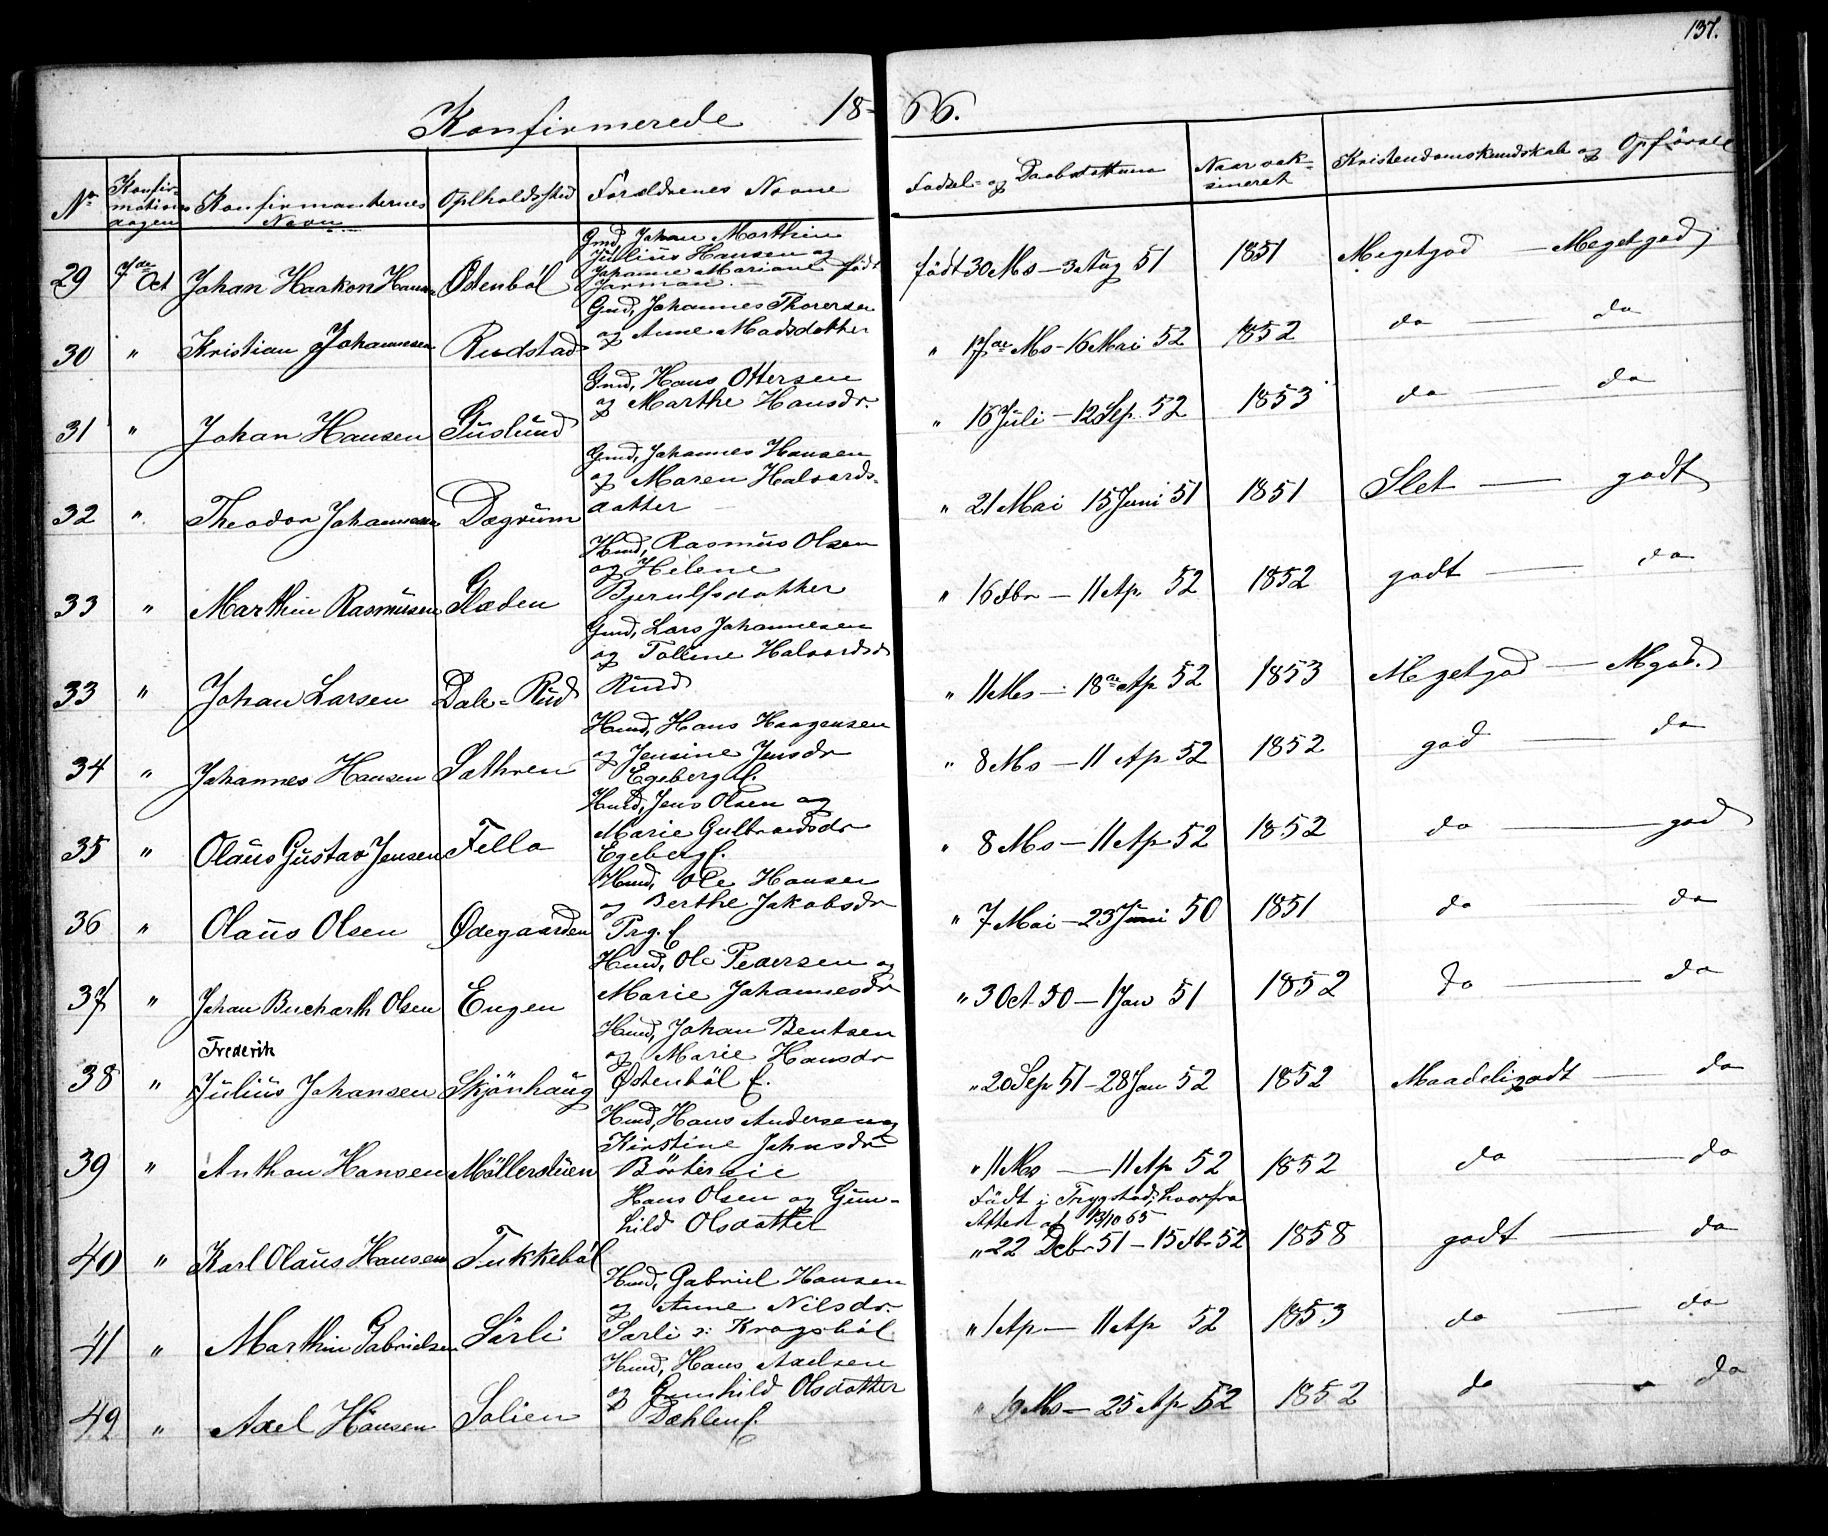 137.
Konfirmerede 18-66.
No Konfirmationsdagen Konfirmanternes Navn Opholdssted Forældrenes Navne Fødsel- og Daabsdatum Naar vaksineret Kristendomskundskab og Opførsel
Gmd, Johan Marthin
Julius Hansen og
Johanne Mariane født
29 7de Oct Johan Haakon Hansen Østenböl Jarman. født 30 Ms - 3 Aug 51 1851 Megetgod - Megetgod
Gmd, Johannes Thorersen
30 " Kristian Johannesen Rudstad og Anne Madsdatter " 17de Ms - 16 Mai 52 1852 do - do
Gmd, Hans Ottersen
og Marthe Hansdr.
31 " Johan Hansen Guslund " 15 Juli - 12 Sep. 52 1853 do - do
Gmd, Johannes Hansen
og Maren Halvords-
32 " Theodor Johannesen Dægrum datter " 21 Mai 15 Juni 51 1851 Slet - godt
Hmd, Rasmus Olsen
og Helene
33 " Marthin Rasmusen Glæden Bjerulfsdatter " 16 Fbr - 11 Ap. 52 1852 godt - do
Gmd, Lars Johannesen
og Tolline Halvordsd
33 " Johan Larsen Dale-Rud Rud " 11 Ms - 18de Ap 52 1853 Megetgod - Mgod.
Hmd, Hans Haagensen
og Jensine Jensdr
34 " Johannes Hansen Sathren Egeberg E. " 8 Ms - 11 Ap 52 1852 god - do
Hmd, Jens Olsen og
Marie Gulbrandsdr
35 " Olaus Gustav Jensen Fella Egeberg E. " 8 Ms - 11 Ap 52 1852 do - god
Hmd, Ole Hansen
og Berthe Jakobsdr
36 " Olaus Olsen Ødegaarden Prg. E " 7 Mai - 23 Juni 50 1851 do - do
Hmd, Ole Pedersen og
37 " Johan Bucharth Olsen Engen Marie Johannesdr " 3 Oct 50 - 1 Jan 51 1852 do - do
Hmd, Johan Bentsen
Frederik og Marie Hansdr
38 " Julius Johansen Skjönhaug Østenböl E. " 20 Sep 51 - 28 Jan 52 1852 Maadeligodt - do
Hmd, Hans Andersen og
Kirstine Johnsdr
39 " Anthon Hansen Möllerstuen Börtereie " 11 Ms - 11 Ap 52 1852 do - do
Hans Olsen og Gun- Födt i Trygstad, hvorfra
hild Olsdatter Attest af 13/10 65
40 " Karl Olaus Hansen Tukkeböl " 22 Debr 51 - 15 Fbr 52 1858 godt - do
Hmd, Gabriel Hansen
og Anne Nilsdr.
41 " Marthin Gabrielsen Sörli Sørli s: Kragsböl " 1 Ap - 11 Ap 52 1853 do - do
Hmd, Hans Axelsen
og Gunhild Olsdatter
42 " Axel Hansen Solien Dæhlen E. " 9 Ms - 25 Ap 52 1852 do - do